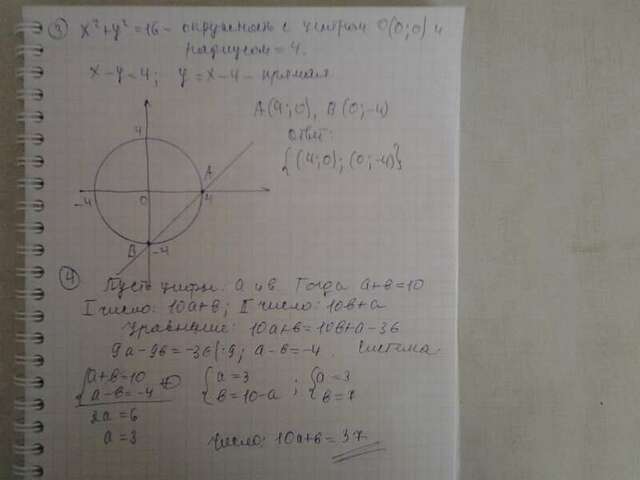 ③ x²+y²=16 - окружность с центром O(0;0) и
радиусом = 4.
x-y=4; y=x-4 - прямая
A(4;0), B(0;-4)
Ответ:
{(4;0);(0;-4)}
4
A
-4 0 4
B -4
④ Пусть цифры: a и b. Тогда a+b=10
I число: 10a+b; II число: 10b+a
Уравнение: 10a+b=10b+a-36
9a-9b=-36|:9; a-b=-4. Система:
{a+b=10 {a=3 ; {a=3
a-b=-4 ⊕ b=10-a b=7
2a=6
a=3 Число: 10a+b=37